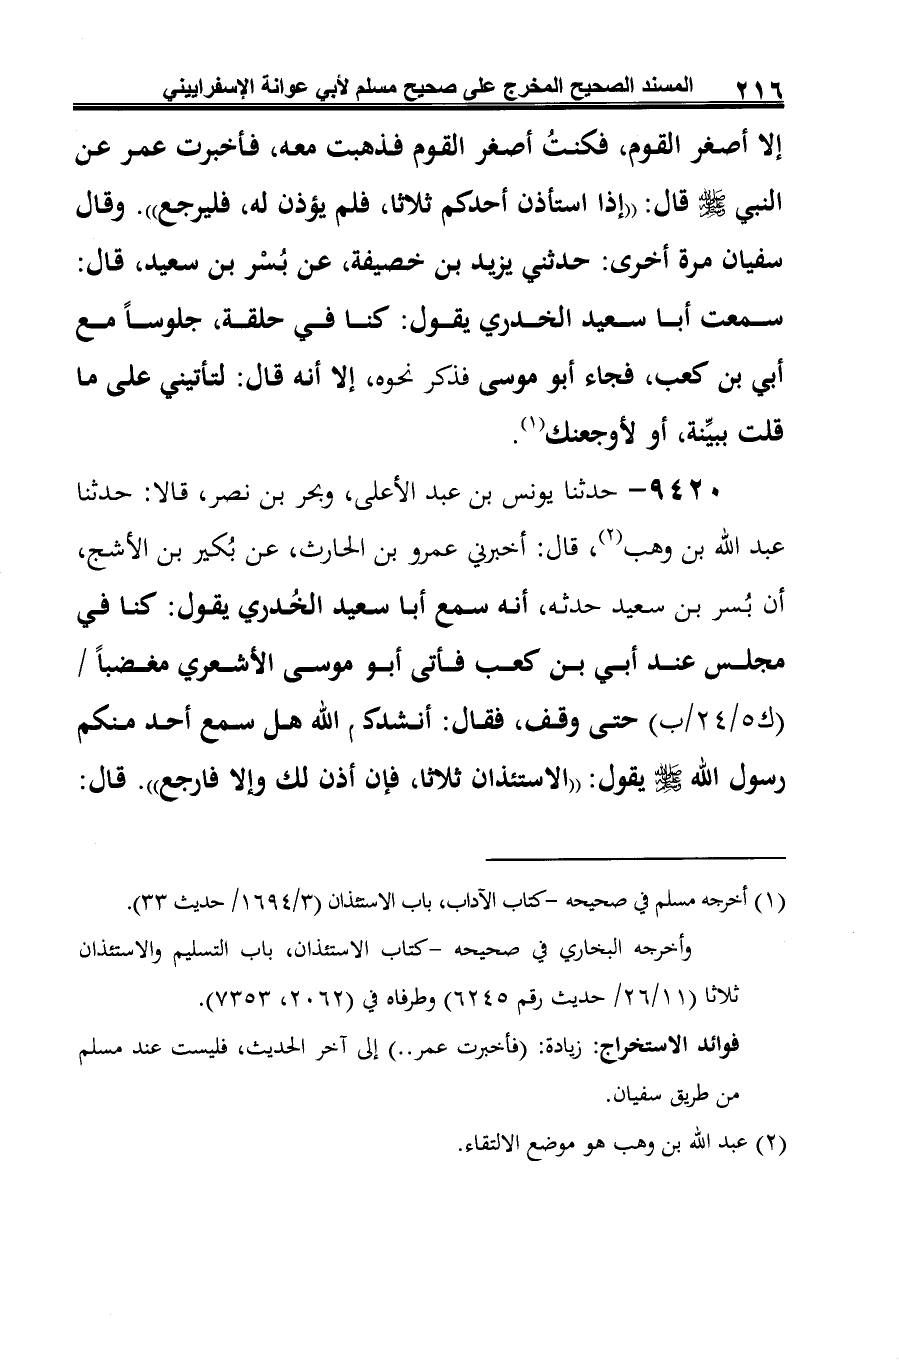 ٢١٦ المسند الصحيح المخرج على صحيح مسلم لأبي عوانة الإسفراييني
إلا أصغر القوم، فكنتُ أصغر القوم فذهبت معه، فأخبرت عمر عن
النبي ﷺ قال: ((إذا استأذن أحدكم ثلاثا، فلم يؤذن له، فليرجع)). وقال
سفيان مرة أخرى: حدثني يزيد بن خصيفة، عن بُسْر بن سعيد، قال:
سمعت أبا سعيد الخدري يقول: كنا في حلقة، جلوساً مع
أبي بن كعب، فجاء أبو موسى فذكر نحوه، إلا أنه قال: لتأتيني على ما
قلت ببيِّنة، أو لأوجعنك(١).
٩٤٢٠- حدثنا يونس بن عبد الأعلى، وبحر بن نصر، قالا: حدثنا
عبد الله بن وهب(٢)، قال: أخبرني عمرو بن الحارث، عن بُكير بن الأشج،
أن بُسر بن سعيد حدثه، أنه سمع أبا سعيد الخُدري يقول: كنا في
مجلس عند أبي بن كعب فأتى أبو موسى الأشعري مغضباً /
(ك٢٤/٥/ب) حتى وقف، فقال: أنشدكم الله هل سمع أحد منكم
رسول الله ﷺ يقول: ((الاستئذان ثلاثا، فإن أذن لك وإلا فارجع)). قال:
(١) أخرجه مسلم في صحيحه -كتاب الآداب، باب الاستئذان (١٦٩٤/٣/ حديث ٣٣).
وأخرجه البخاري في صحيحه -كتاب الاستئذان، باب التسليم والاستئذان
ثلاثا (٢٦/١١/ حديث رقم ٦٢٤٥) وطرفاه في (٢٠٦٢، ٧٣٥٣).
فوائد الاستخراج: زيادة: (فأخبرت عمر..) إلى آخر الحديث، فليست عند مسلم
من طريق سفيان.
(٢) عبد الله بن وهب هو موضع الالتقاء.